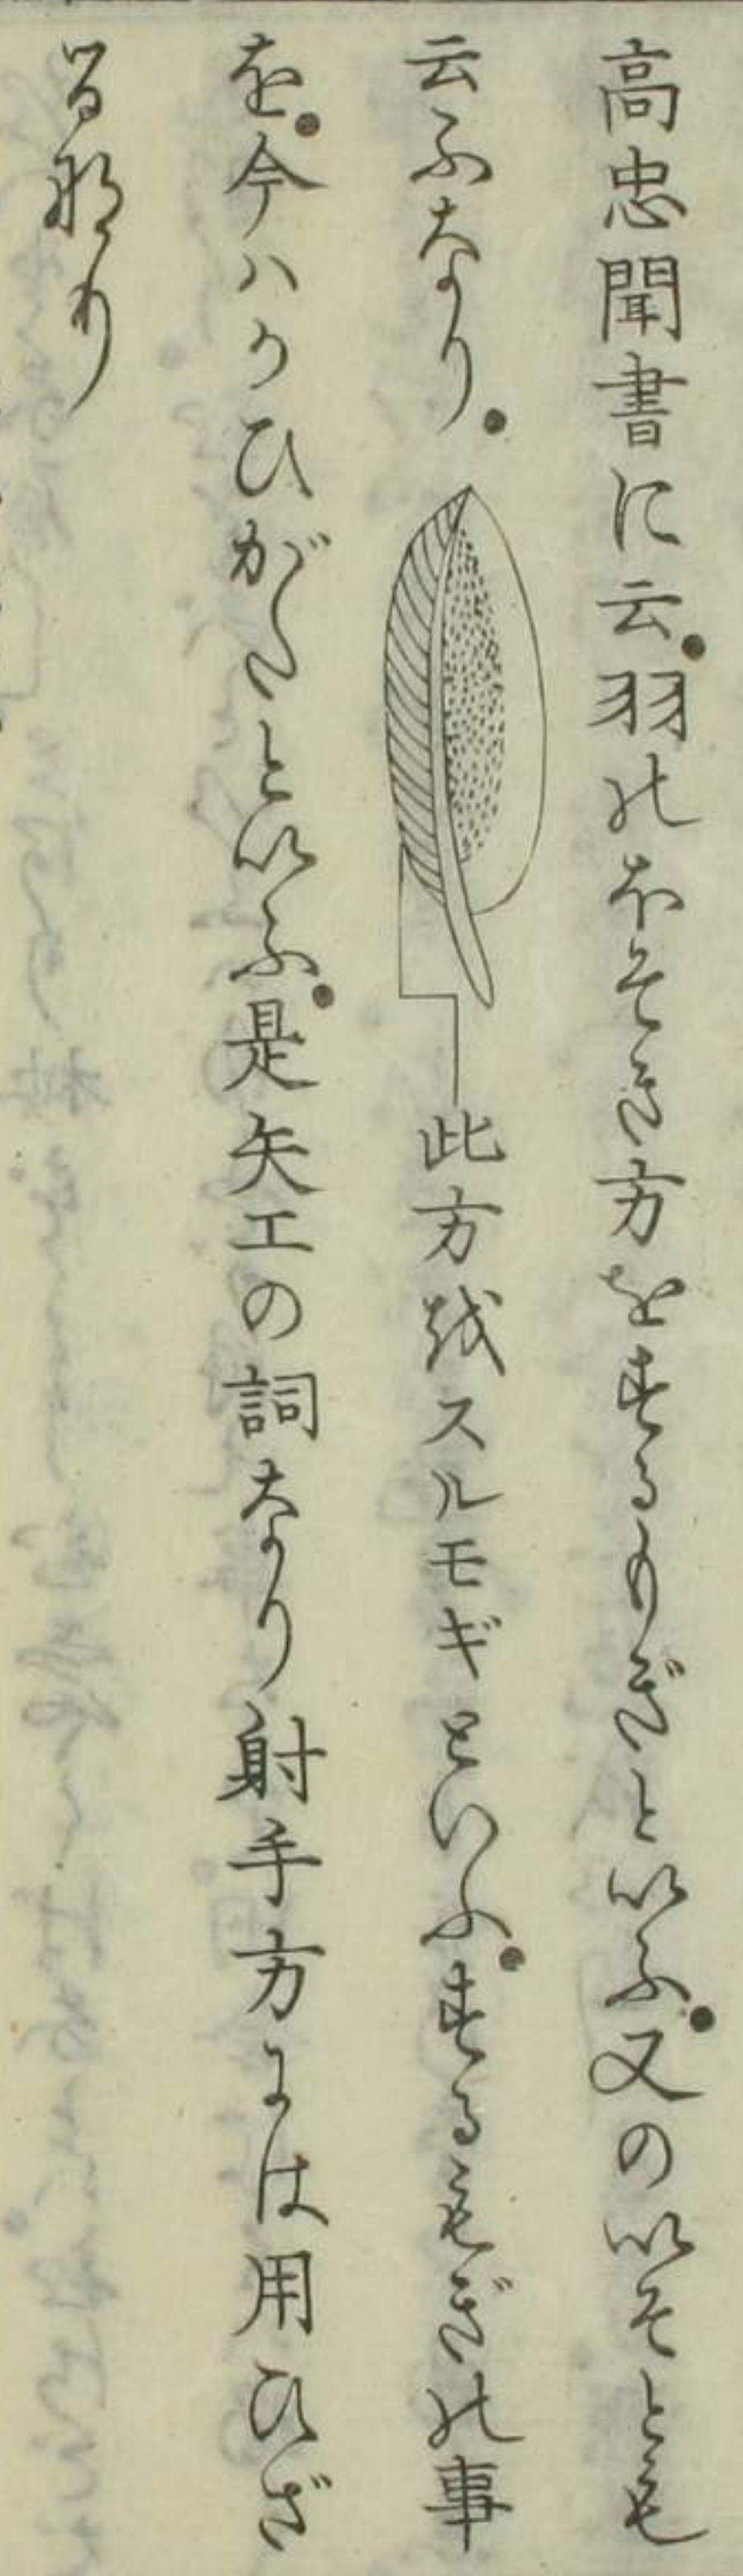 高忠聞書に云羽のほそき方をするもぎといふ又のいそとも
云ふなり
此方をスルモギといふするもぎの事
を今ハかひがたといふ是矢工の詞なり射手方には用ひざ
るなり